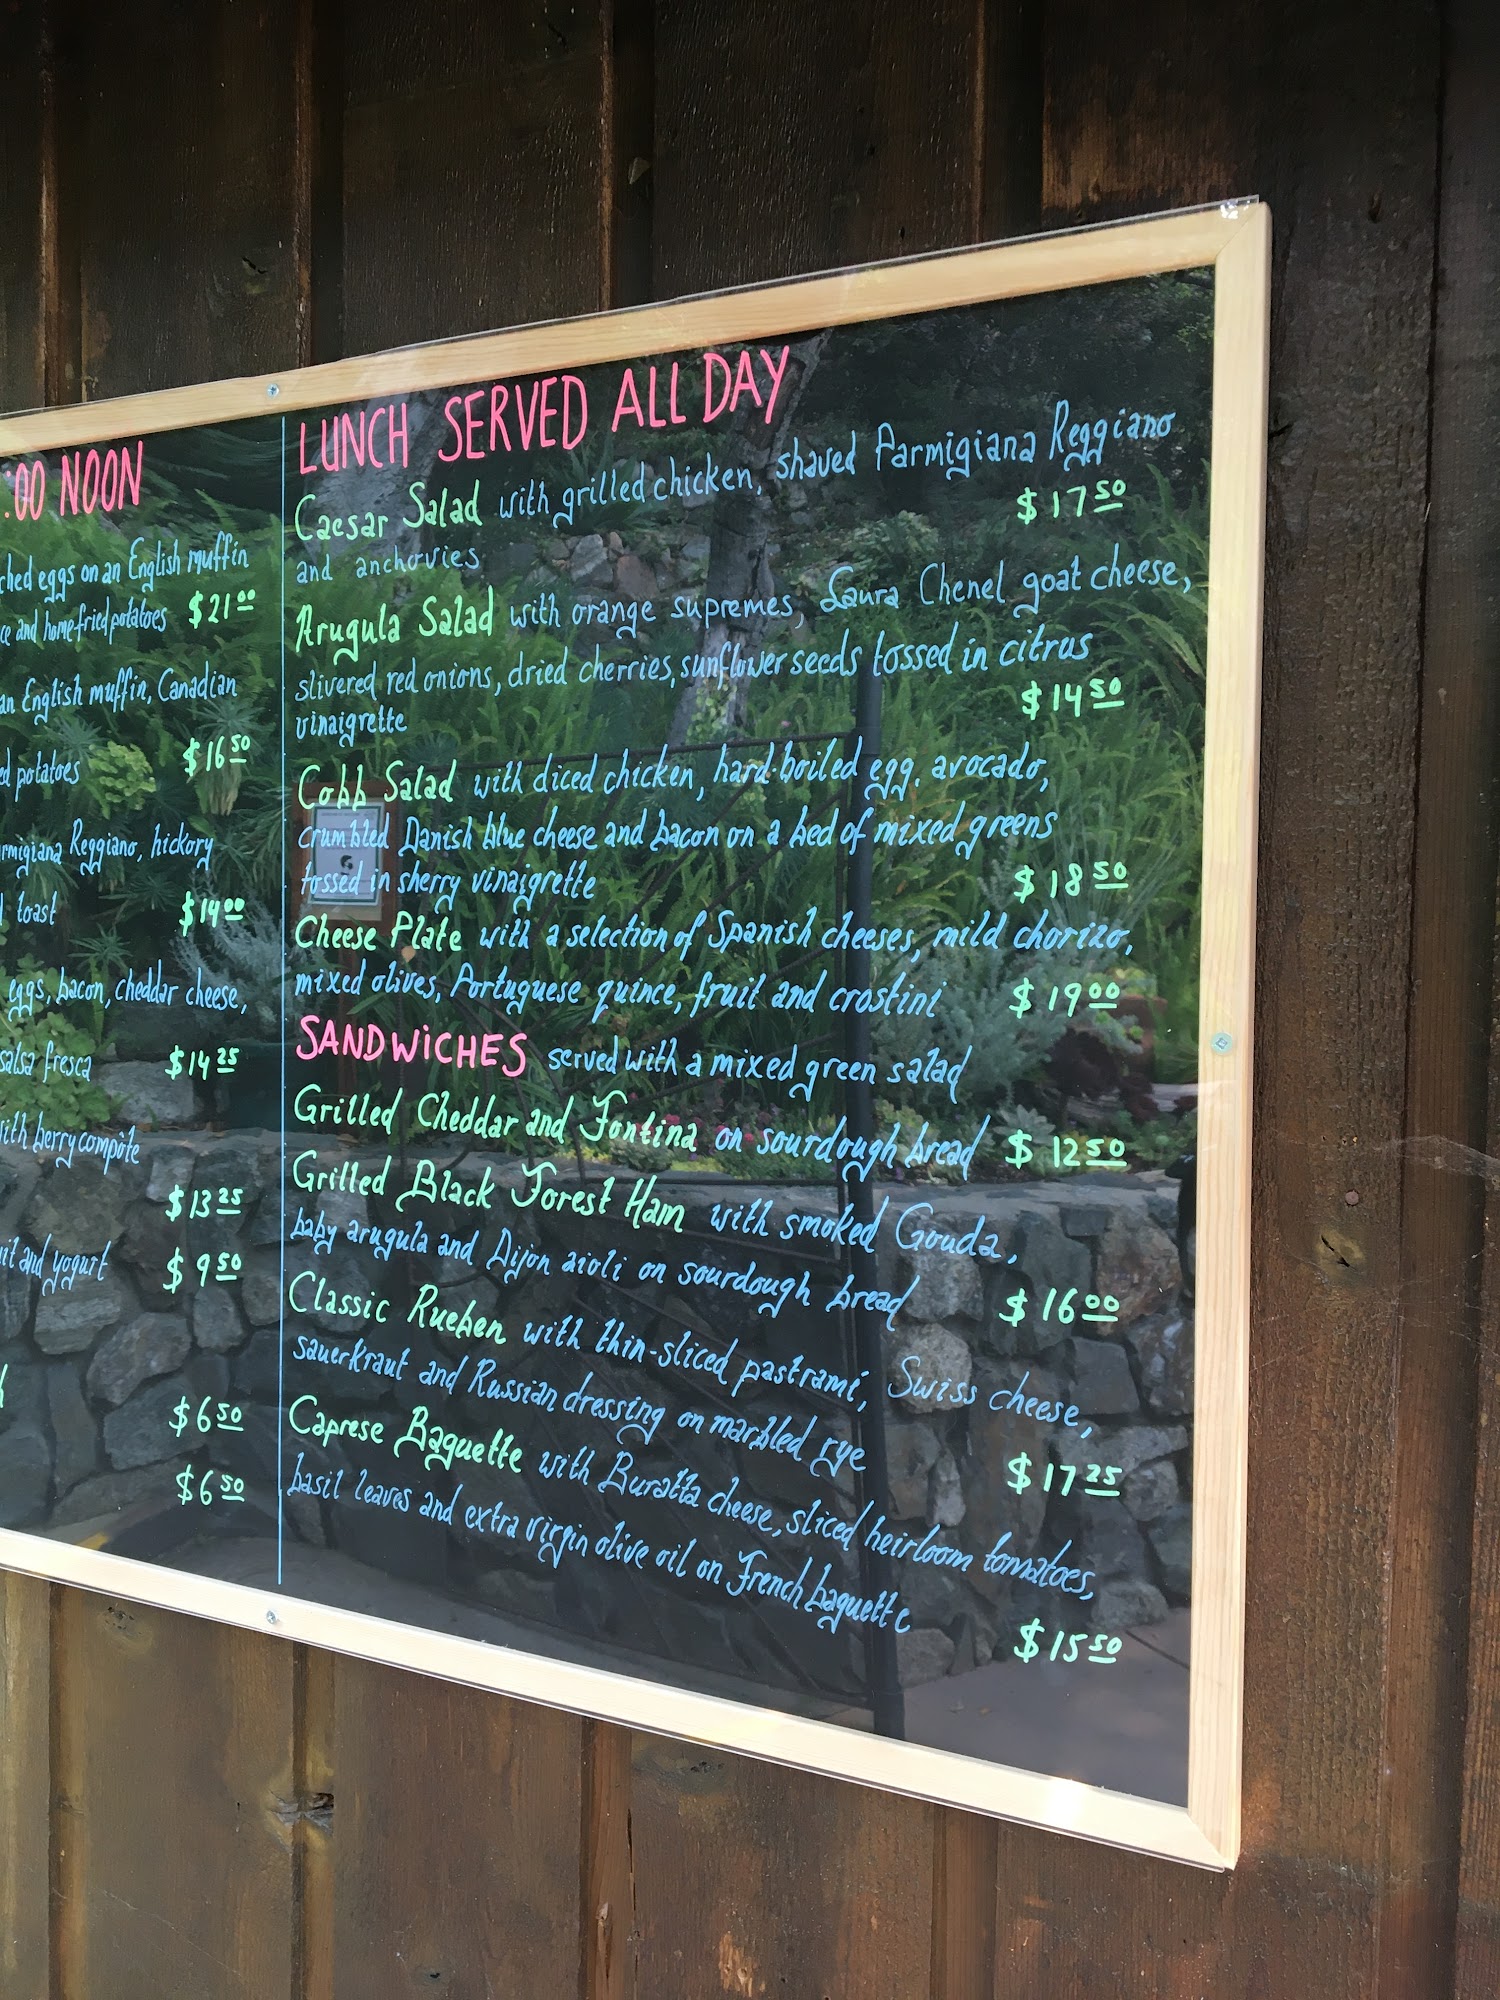 :00 NOON
ched eggs on an English muffin
ce and home fried potatoes $21.00
an English muffin, Canadian
ed potatoes $16.50
rmigiana Reggiano, hickory
toast $14.00
eggs, bacon, cheddar cheese,
salsa fresca $14.25
with berry compôte
$13.25
uit and yogurt $9.50
$6.50
$6.50
LUNCH SERVED ALL DAY
Caesar Salad with grilled chicken, shaved Parmigiana Reggiano
and anchovies $17.50
Arugula Salad with orange supremes, Laura Chenel goat cheese,
slivered red onions, dried cherries, sunflower seeds tossed in citrus
vinaigrette $14.50
Cobb Salad with diced chicken, hard-boiled egg, avocado,
crumbled Danish blue cheese and bacon on a bed of mixed greens
tossed in sherry vinaigrette $18.50
Cheese Plate with a selection of Spanish cheeses, mild chorizo,
mixed olives, Portuguese quince, fruit and crostini $19.00
SANDWiCHES served with a mixed green salad
Grilled Cheddar and Fontina on sourdough bread $12.50
Grilled Black Forest Ham with smoked Gouda,
baby arugula and Dijon aioli on sourdough bread $16.00
Classic Rueben with thin-sliced pastrami, Swiss cheese,
sauerkraut and Russian dressing on marbled rye $17.25
Caprese Baguette with Buratta cheese, sliced heirloom tomatoes,
basil leaves and extra virgin olive oil on French baguette $15.50